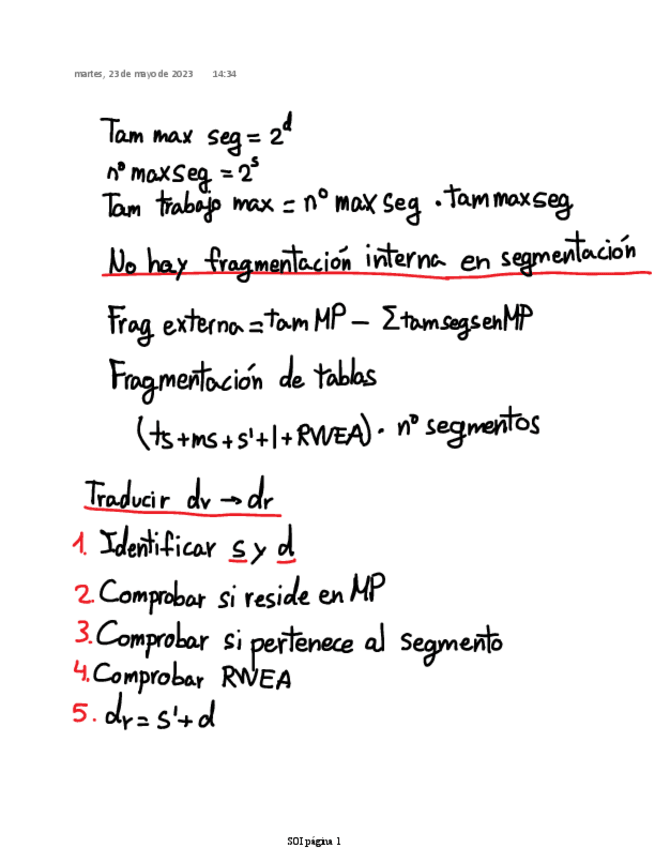 martes, 23 de mayo de 2023 14:34
Tam max seg = 2^d
nº max seg = 2^s
Tam trabajo max = nº max seg · tam max seg
No hay fragmentación interna en segmentación
Frag externa = tam MP - Σ tam segs en MP
Fragmentación de tablas
(ts + ms + s' + l + RWEA) · nº segmentos
Traducir dv → dr
1. Identificar s y d
2. Comprobar si reside en MP
3. Comprobar si pertenece al segmento
4. Comprobar RWEA
5. dr = s' + d
SOI página 1